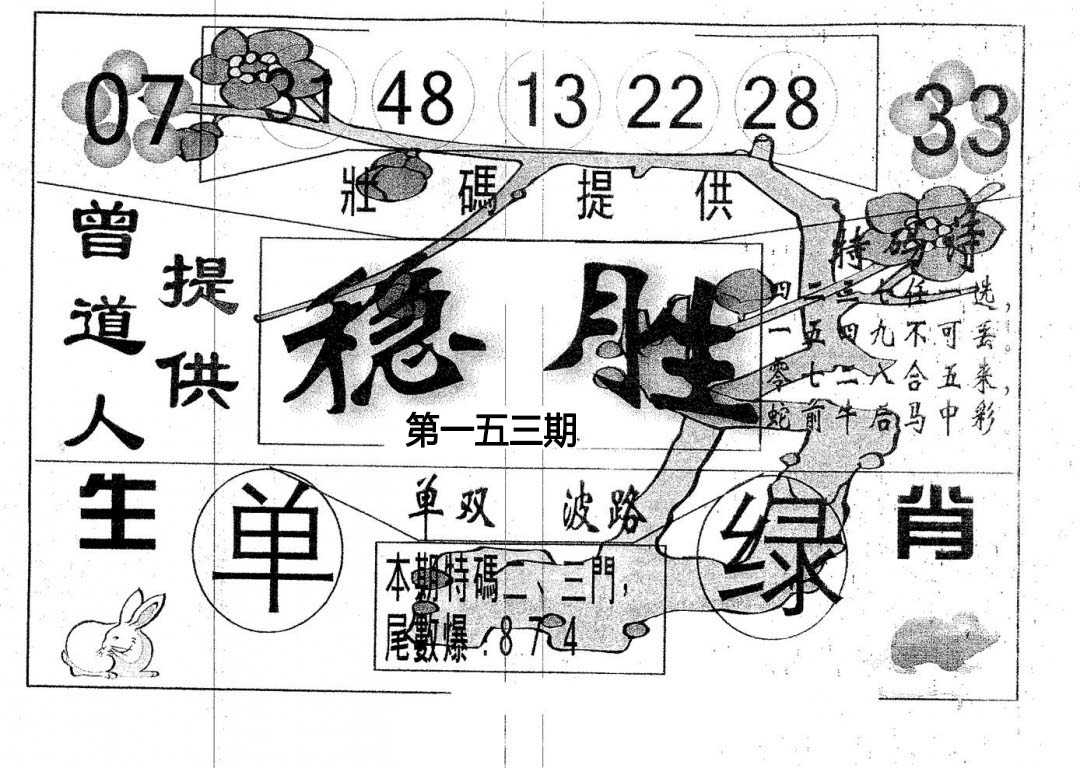 07 31 48 13 22 28 33
壯碼提供
曾道人
提供
特码诗
四二三七任一选，
一五四九不可丢。
零七二八合五来，
蛇前牛后马中彩
稳胜
第一五三期
生
单
单双 波路
绿
肖
本期特碼二、三門，
尾數爆：8 7 4